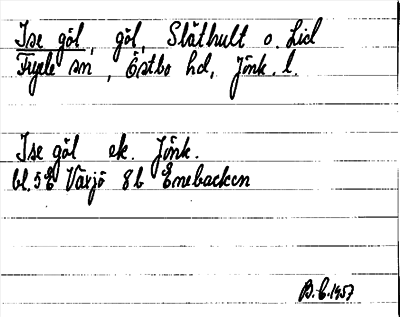 Ise göl, göl, Slåthult o. Lid
Fryele sn, Östbo hd, Jönk. l.
Ise göl ek. Jönk.
bl. 5E Växjö 8b Enebacken
B.C. 1957